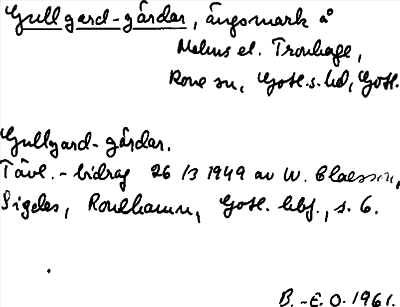 Gullgard-gårdar, ängsmark å
Melins el. Tronhage,
Rone sn, Gotl.s. hd, Gotl.
Gullgard-gårdar.
Tävl.-bidrag 26/3 1949 av W. Claesson,
Sigdes, Ronehamn, Gotl. hbf., s. 6.
B.-E.O. 1961.